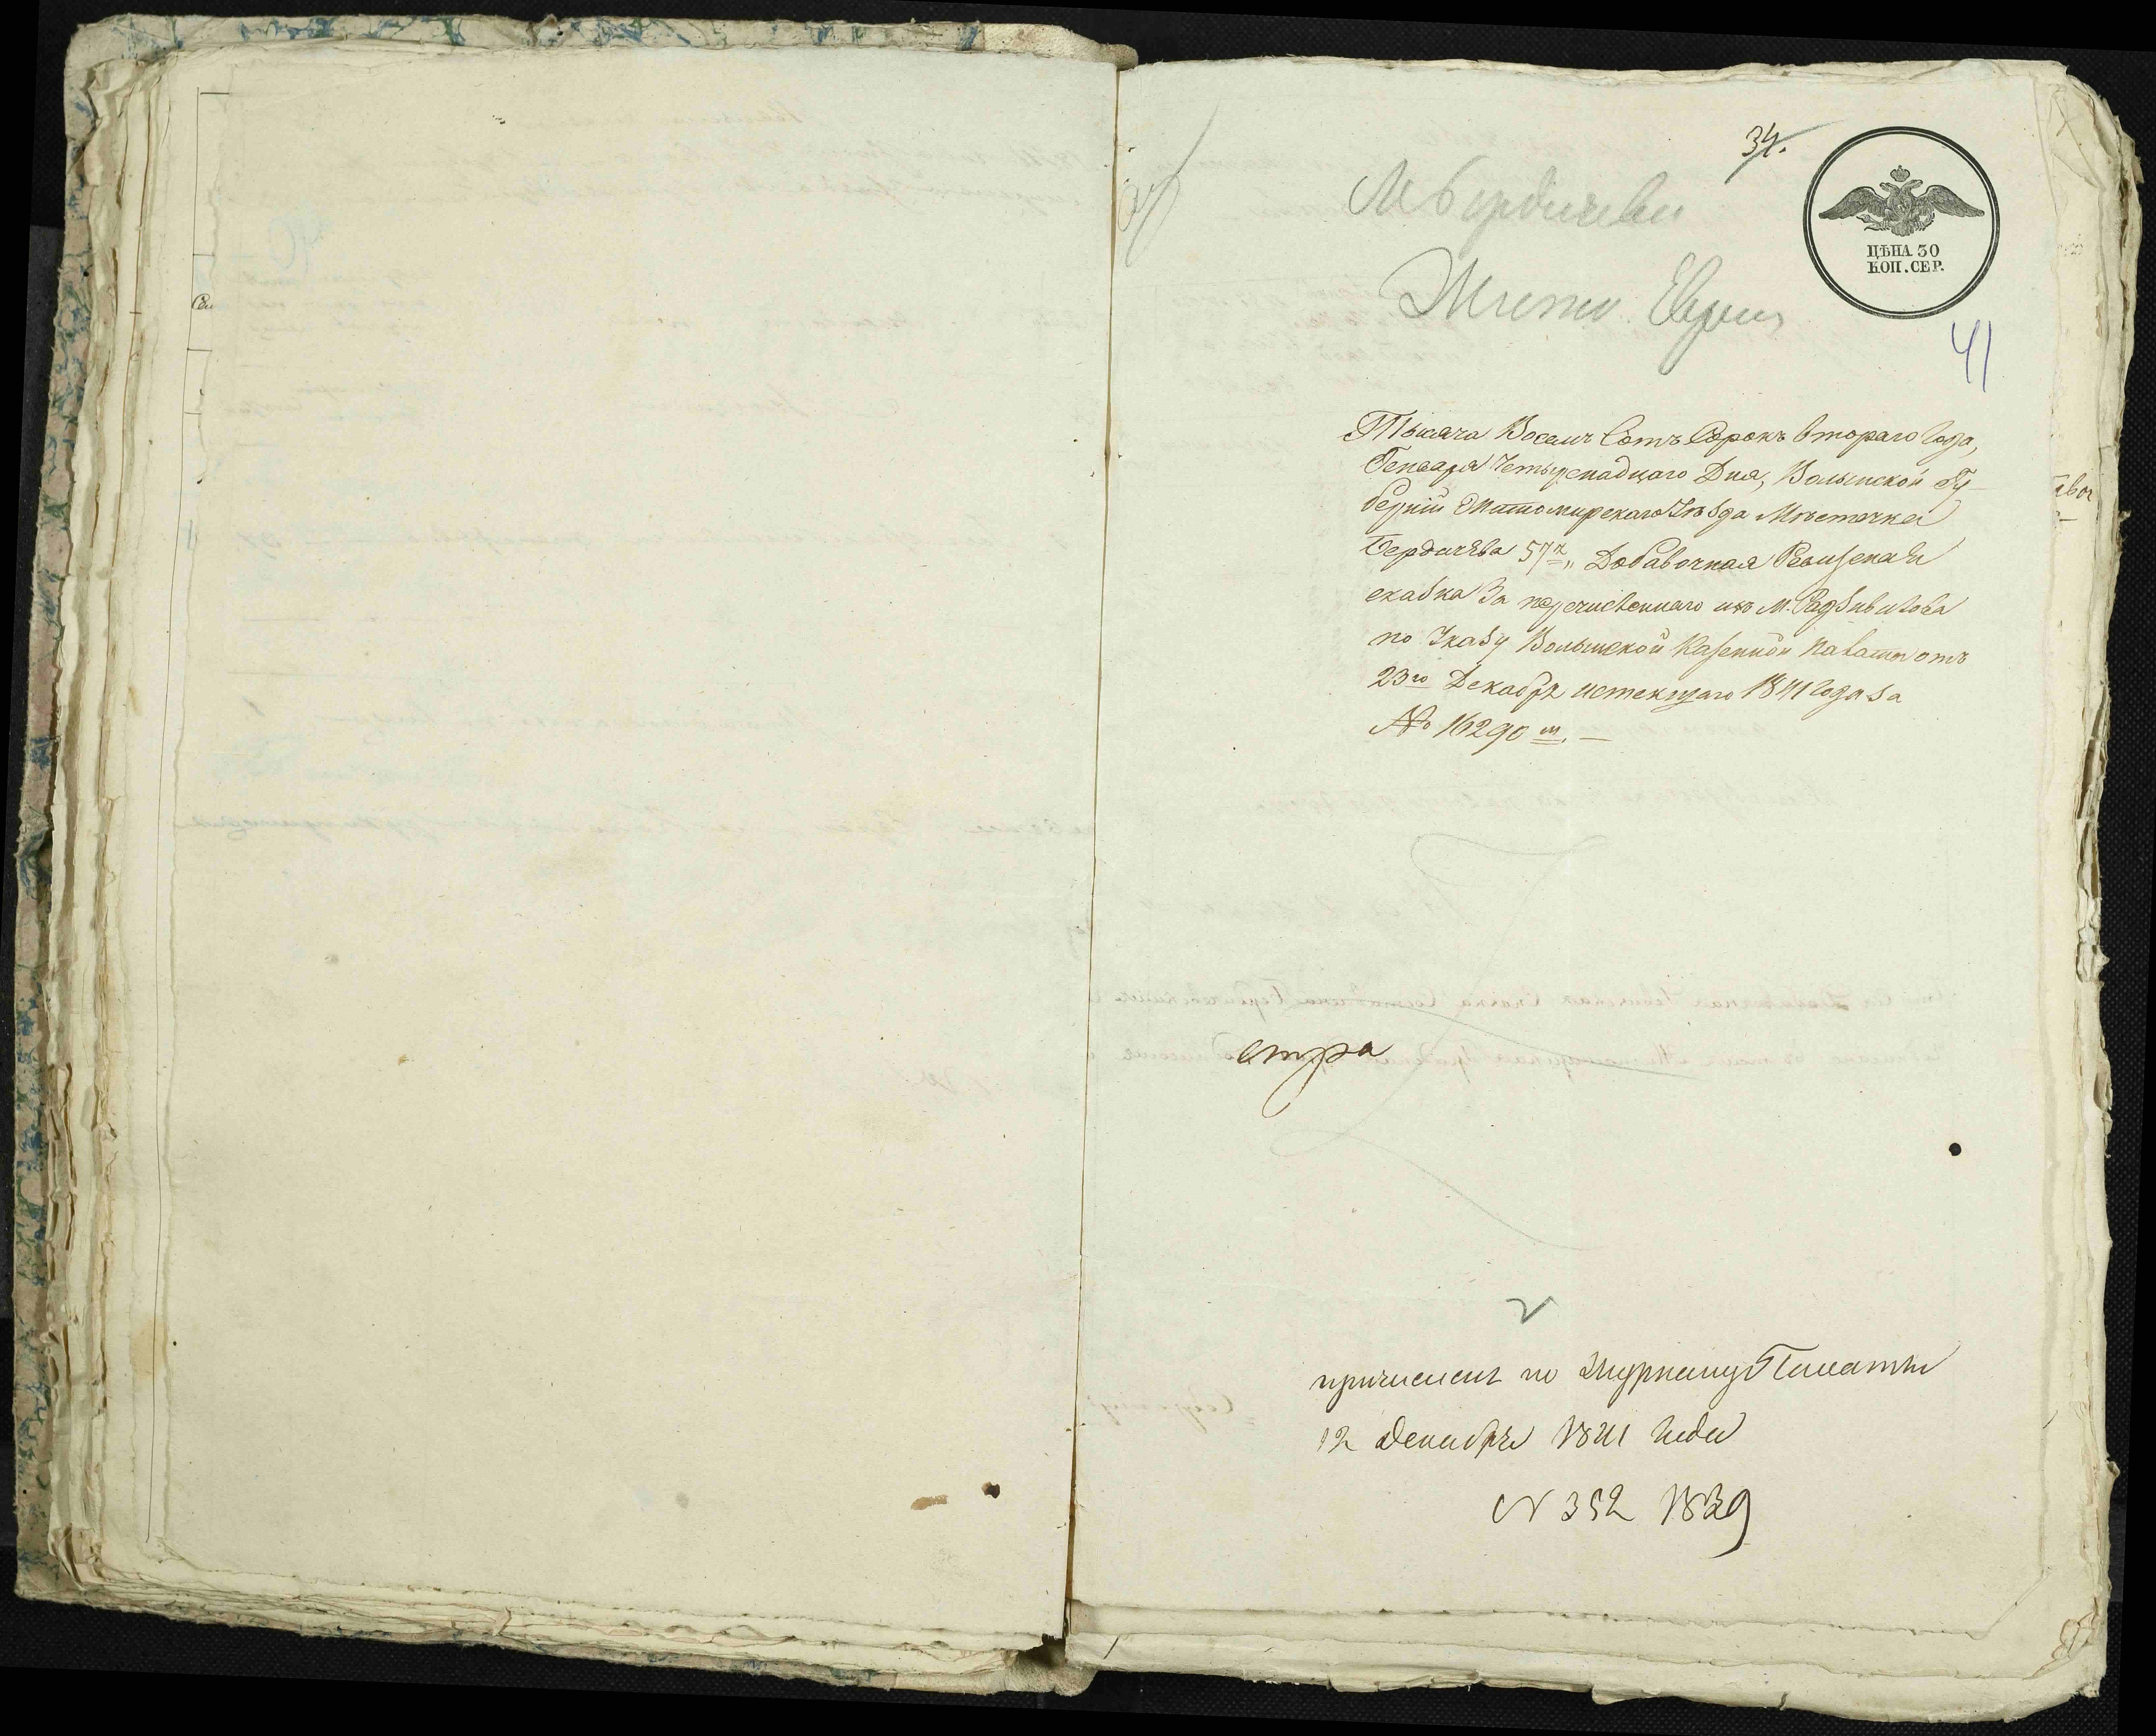 34.
М Бердичева
ЦѢНА 30
КОП. СЕР.
Евреи
41
Тысяча Восемь Сотъ Сорокъ Втораго Года,
Генваря Четырнадцаго Дня, Волынской Гу-
берніи Житомирскаго Уѣзда Мѣстечка
Бердичева 57я „ Добавочная Ревизская
сказка За перечисленнаго изъ М. Радзивилова
по Указу Волынской Казенной Палаты отъ
23го Декабря истекшаго 1841 года за
№ 16290 м. —
стра
причислен по Журналу Палаты
12 Декабря 1841 года
N 352 1839